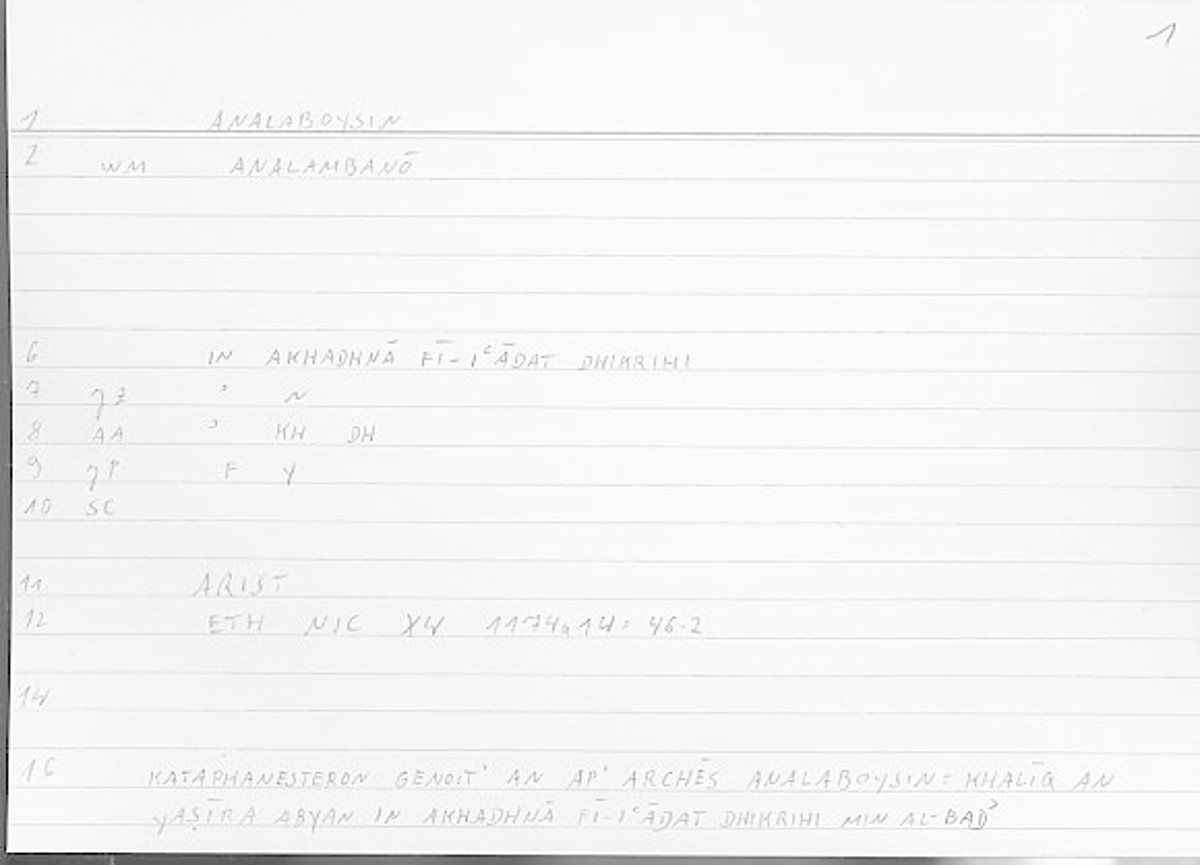 1
1 ANALABOYSIN
2 WM ANALAMBANŌ
6 IN AKHADHNĀ FĪ-IʿĀDAT DHIKRIHI
7 ʾ N
8 AA ʾ KH DH
9 F Y
10 SC
11 ARIST
12 ETH NIC X4 1174a14: 46.2
14
16 KATAPHANESTERON GENOIT' AN AP' ARCHĒS ANALABOYSIN = KHALĪQ AN
YAṢĪRA ABYAN IN AKHADHNĀ FĪ-IʿĀDAT DHIKRIHI MIN AL-BADʾ